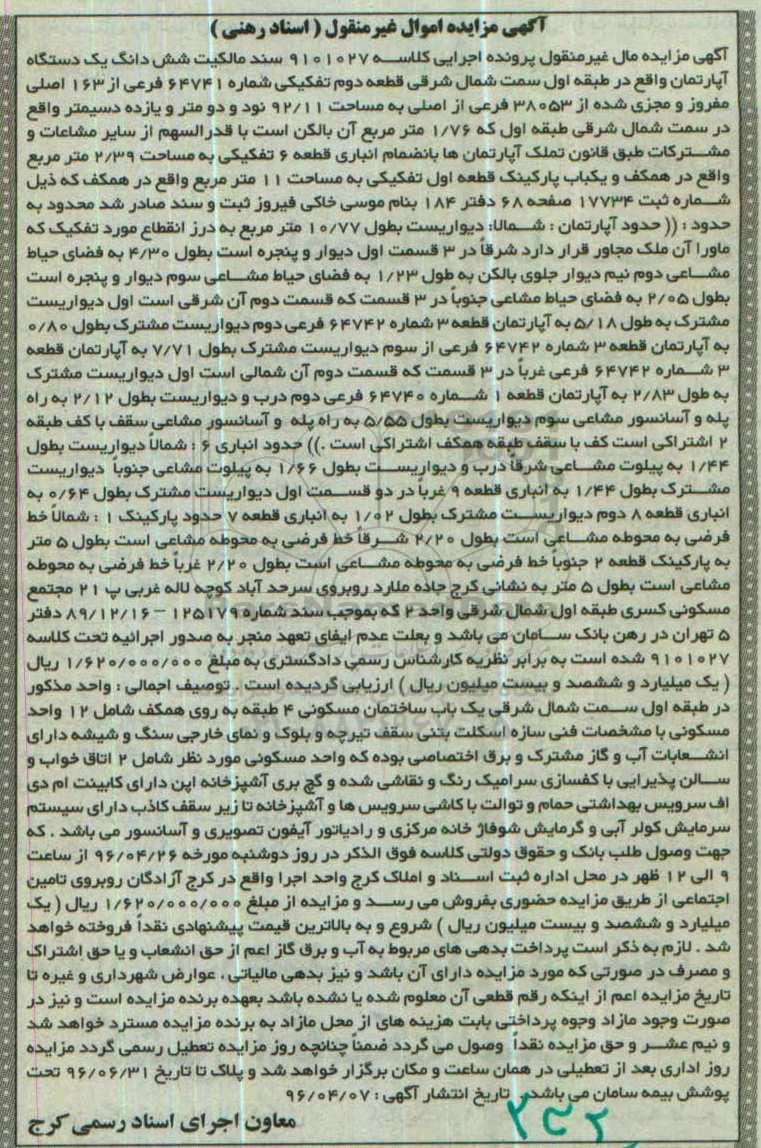 آگهی مزایده اموال غیرمنقول ( اسناد رهنی )
آگهی مزایده مال غیرمنقول پرونده اجرایی کلاسه ۹۱۰۱۰۲۷ سند مالکیت شش دانگ یک دستگاه
آپارتمان واقع در طبقه اول سمت شمال شرقی قطعه دوم تفکیکی شماره ۶۴۷۴۱ فرعی از ۱۶۳ اصلی
مفروز و مجزی شده از ۳۸۰۵۳ فرعی از اصلی به مساحت ۹۲/۱۱ نود و دو متر و یازده دسیمتر واقع
در سمت شمال شرقی طبقه اول که ۱/۷۶ متر مربع آن بالکن است با قدرالسهم از سایر مشاعات و
مشترکات طبق قانون تملک آپارتمان ها بانضمام انباری قطعه ۶ تفکیکی به مساحت ۲/۳۹ متر مربع
واقع در همکف و یکباب پارکینک قطعه اول تفکیکی به مساحت ۱۱ متر مربع واقع در همکف که ذیل
شماره ثبت ۱۷۷۳۴ صفحه ۶۸ دفتر ۱۸۴ بنام موسی خاکی فیروز ثبت و سند صادر شد محدود به
حدود : (( حدود آپارتمان : شمالا: دیواریست بطول ۱۰/۷۷ متر مربع به درز انقطاع مورد تفکیک که
ماورا آن ملک مجاور قرار دارد شرقاً در ۳ قسمت اول دیوار و پنجره است بطول ۴/۳۰ به فضای حیاط
مشاعی دوم نیم دیوار جلوی بالکن به طول ۱/۲۳ به فضای حیاط مشاعی سوم دیوار و پنجره است
بطول ۲/۰۵ به فضای حیاط مشاعی جنوباً در ۳ قسمت که قسمت دوم آن شرقی است اول دیواریست
مشترک به طول ۵/۱۸ به آپارتمان قطعه ۳ شماره ۶۴۷۴۲ فرعی دوم دیواریست مشترک بطول ۰/۸۰
به آپارتمان قطعه ۳ شماره ۶۴۷۴۲ فرعی از سوم دیواریست مشترک بطول ۷/۷۱ به آپارتمان قطعه
۳ شماره ۶۴۷۴۲ فرعی غرباً در ۳ قسمت که قسمت دوم آن شمالی است اول دیواریست مشترک
به طول ۲/۸۳ به آپارتمان قطعه ۱ شماره ۶۴۷۴۰ فرعی دوم درب و دیواریست بطول ۲/۱۲ به راه
پله و آسانسور مشاعی سوم دیواریست بطول ۵/۵۵ به راه پله و آسانسور مشاعی سقف با کف طبقه
۲ اشتراکی است کف با سقف طبقه همکف اشتراکی است .)) حدود انباری ۶ : شمالاً دیواریست بطول
۱/۴۴ به پیلوت مشاعی شرقاً درب و دیواریست بطول ۱/۶۶ به پیلوت مشاعی جنوباً دیواریست
مشترک بطول ۱/۴۴ به انباری قطعه ۹ غرباً در دو قسمت اول دیواریست مشترک بطول ۰/۶۴ به
انباری قطعه ۸ دوم دیواریست مشترک بطول ۱/۰۲ به انباری قطعه ۷ حدود پارکینک ۱ : شمالاً خط
فرضی به محوطه مشاعی است بطول ۲/۲۰ شرقاً خط فرضی به محوطه مشاعی است بطول ۵ متر
به پارکینک قطعه ۲ جنوباً خط فرضی به محوطه مشاعی است بطول ۲/۲۰ غرباً خط فرضی به محوطه
مشاعی است بطول ۵ متر به نشانی کرج جاده ملارد روبروی سرحد آباد کوچه لاله غربی پ ۲۱ مجتمع
مسکونی کسری طبقه اول شمال شرقی واحد ۲ که بموجب سند شماره ۱۲۵۱۷۹ – ۸۹/۱۲/۱۶ دفتر
۵ تهران در رهن بانک سامان می باشد و بعلت عدم ایفای تعهد منجر به صدور اجرائیه تحت کلاسه
۹۱۰۱۰۲۷ شده است به برابر نظریه کارشناس رسمی دادگستری به مبلغ ۱/۶۲۰/۰۰۰/۰۰۰ ریال
( یک میلیارد و ششصد و بیست میلیون ریال ) ارزیابی گردیده است . توصیف اجمالی : واحد مذکور
در طبقه اول سمت شمال شرقی یک باب ساختمان مسکونی ۴ طبقه به روی همکف شامل ۱۲ واحد
مسکونی با مشخصات فنی سازه اسکلت بتنی سقف تیرچه و بلوک و نمای خارجی سنگ و شیشه دارای
انشعابات آب و گاز مشترک و برق اختصاصی بوده که واحد مسکونی مورد نظر شامل ۲ اتاق خواب و
سالن پذیرایی با کفسازی سرامیک رنگ و نقاشی شده و گچ بری آشپزخانه اپن دارای کابینت ام دی
اف سرویس بهداشتی حمام و توالت با کاشی سرویس ها و آشپزخانه تا زیر سقف کاذب دارای سیستم
سرمایش کولر آبی و گرمایش شوفاژ خانه مرکزی و رادیاتور آیفون تصویری و آسانسور می باشد . که
جهت وصول طلب بانک و حقوق دولتی کلاسه فوق الذکر در روز دوشنبه مورخه ۹۶/۰۴/۲۶ از ساعت
۹ الی ۱۲ ظهر در محل اداره ثبت اسناد و املاک کرج واحد اجرا واقع در کرج آزادگان روبروی تامین
اجتماعی از طریق مزایده حضوری بفروش می رسد و مزایده از مبلغ ۱/۶۲۰/۰۰۰/۰۰۰ ریال ( یک
میلیارد و ششصد و بیست میلیون ریال ) شروع و به بالاترین قیمت پیشنهادی نقداً فروخته خواهد
شد . لازم به ذکر است پرداخت بدهی های مربوط به آب و برق گاز اعم از حق انشعاب و یا حق اشتراک
و مصرف در صورتی که مورد مزایده دارای آن باشد و نیز بدهی مالیاتی ، عوارض شهرداری و غیره تا
تاریخ مزایده اعم از اینکه رقم قطعی آن معلوم شده یا نشده باشد بعهده برنده مزایده است و نیز در
صورت وجود مازاد وجوه پرداختی بابت هزینه های از محل مازاد به برنده مزایده مسترد خواهد شد
و نیم عشر و حق مزایده نقداً وصول می گردد ضمناً چنانچه روز مزایده تعطیل رسمی گردد مزایده
روز اداری بعد از تعطیلی در همان ساعت و مکان برگزار خواهد شد و پلاک تا تاریخ ۹۶/۰۶/۳۱ تحت
پوشش بیمه سامان می باشد . تاریخ انتشار آگهی : ۹۶/۰۴/۰۷
معاون اجرای اسناد رسمی کرج